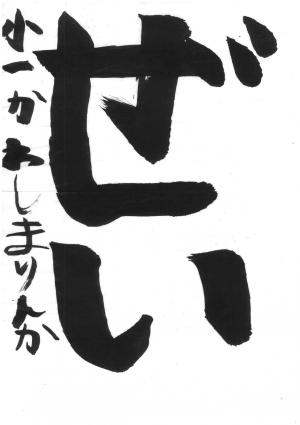 ぜい
小一かわしまりんか